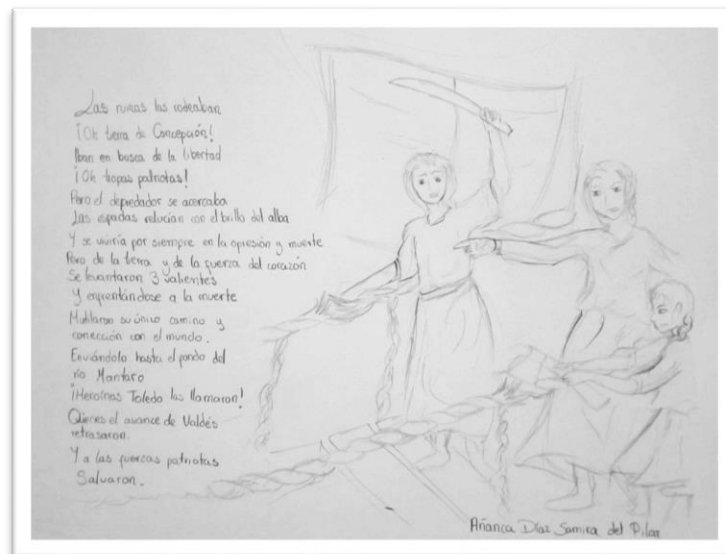 Las ruinas las rodeaban
¡Oh tierra de Concepción!
Iban en busca de la libertad
¡Oh tropas patriotas!
Pero el depredador se acercaba
Las espadas relucían con el brillo del alba
Y se viviría por siempre en la opresión y muerte
Pero de la tierra y de la fuerza del corazón
Se levantaron 3 valientes
Y enfrentándose a la muerte
su único camino y
conección con el mundo.
Enviándolo hasta el fondo del
río Mantaro
¡Heroínas Toledo las llamaron!
Quienes el avance de Valdés
retrasaron.
Y a las fuerzas patriotas
Salvaron.
Añanca Díaz Samira del Pilar